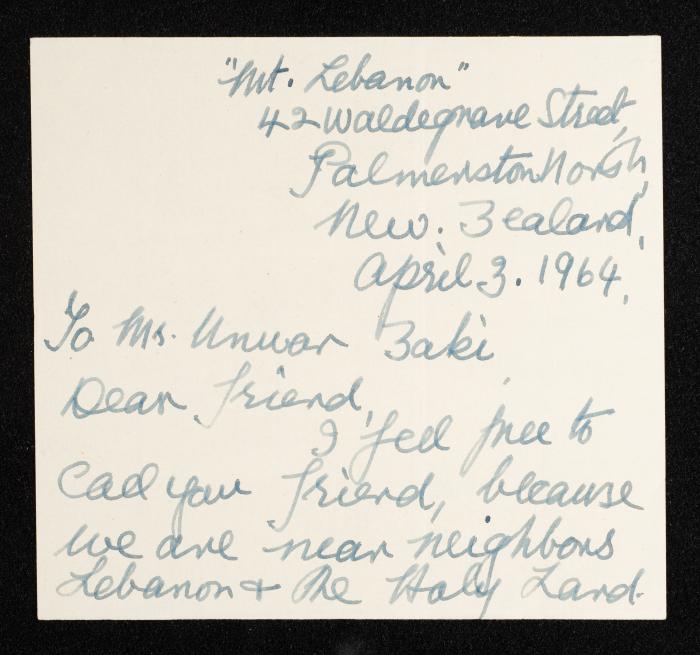 "Mt. Lebanon"
42 Waldegrave Street,
Palmerston North,
New. Zealand,
April 3. 1964,
To Mr. Unwar Zaki
Dear friend,
I feel free to
Call you friend, because
we are near neighbors
Lebanon & The Holy Land.